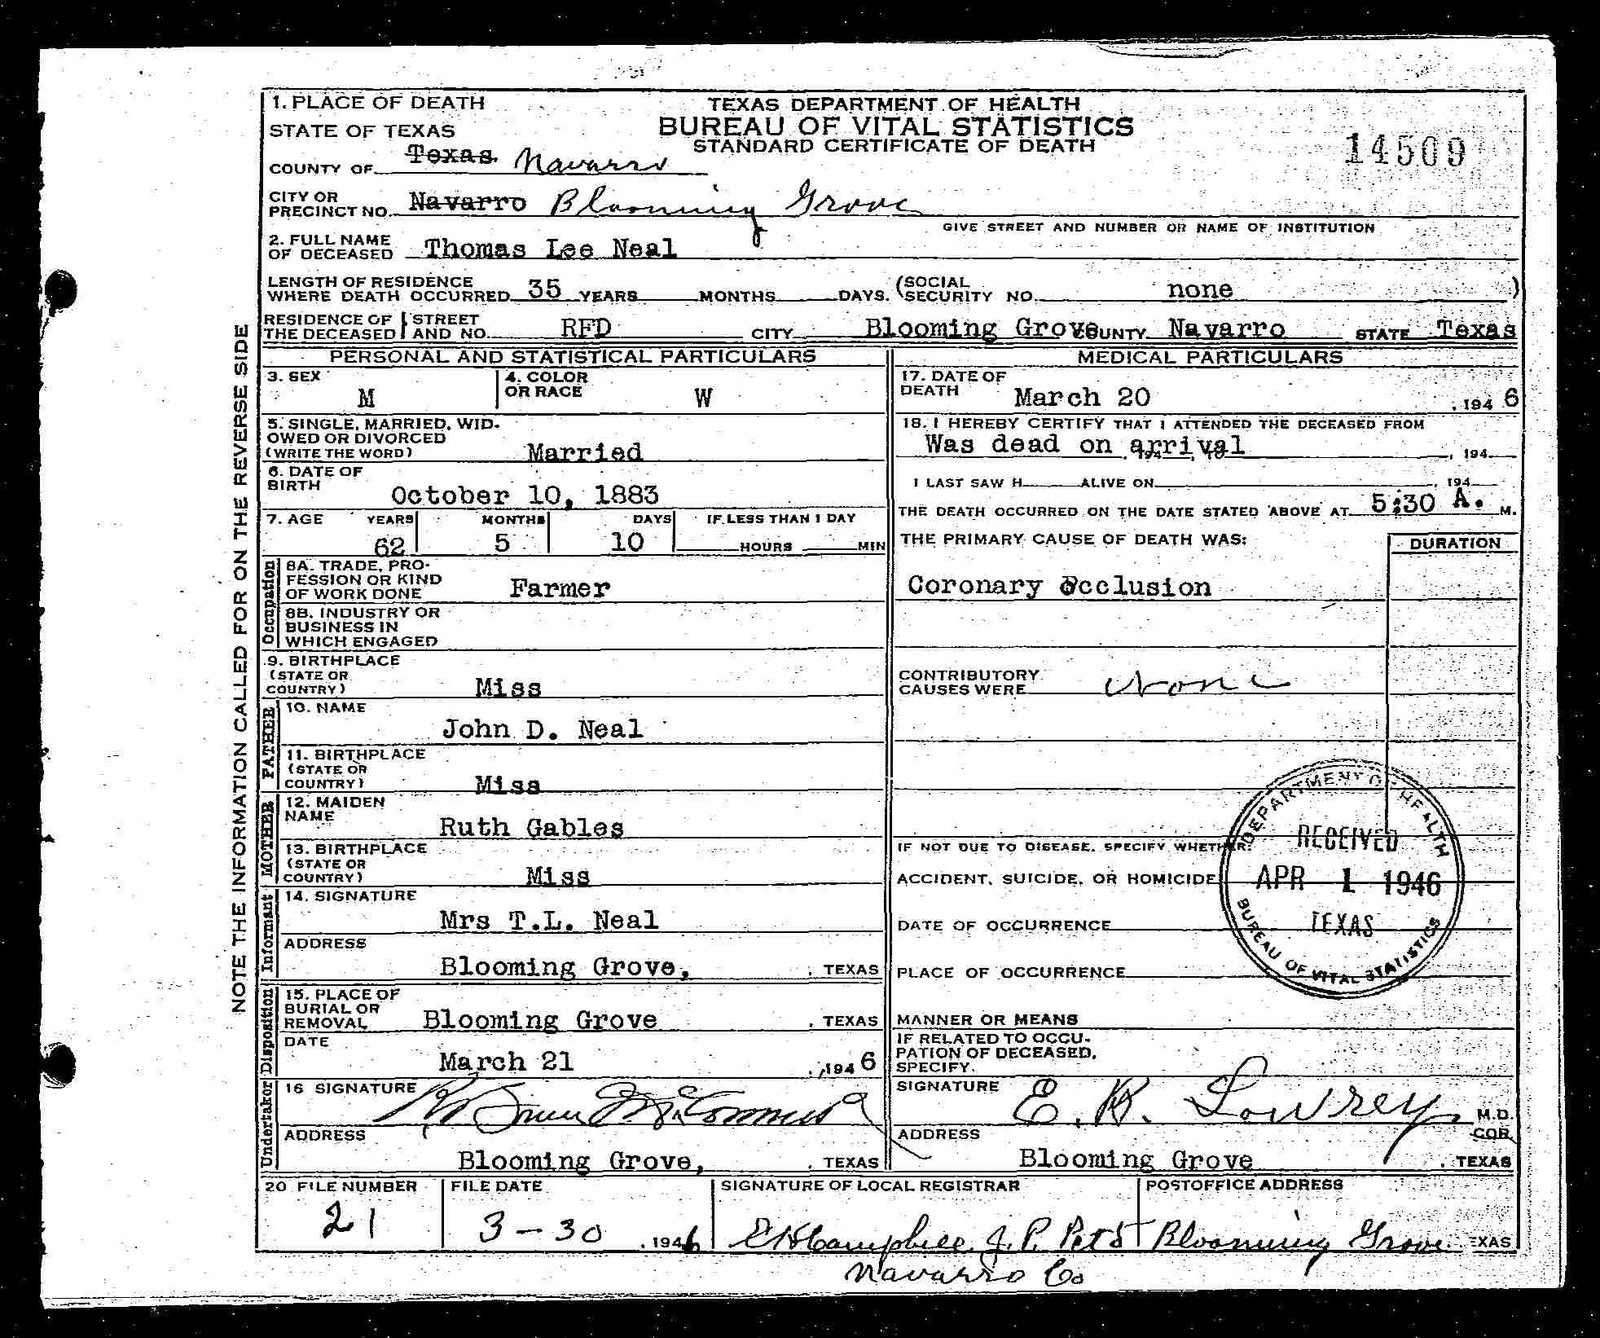 1. PLACE OF DEATH
STATE OF TEXAS
COUNTY OF Texas Navarro
TEXAS DEPARTMENT OF HEALTH
BUREAU OF VITAL STATISTICS
STANDARD CERTIFICATE OF DEATH
14509
CITY OR
PRECINCT NO. Navarro Blooming Grove
GIVE STREET AND NUMBER OR NAME OF INSTITUTION
2. FULL NAME
OF DECEASED Thomas Lee Neal
LENGTH OF RESIDENCE
WHERE DEATH OCCURRED 35 YEARS MONTHS DAYS. (SOCIAL
SECURITY NO. none )
RESIDENCE OF
THE DECEASED
STREET
AND NO. RFD CITY Blooming Grove COUNTY Navarro STATE Texas
NOTE THE INFORMATION CALLED FOR ON THE REVERSE SIDE
PERSONAL AND STATISTICAL PARTICULARS
3. SEX M
4. COLOR
OR RACE W
5. SINGLE, MARRIED, WID-
OWED OR DIVORCED
(WRITE THE WORD) Married
6. DATE OF
BIRTH October 10, 1883
7. AGE YEARS MONTHS DAYS IF LESS THAN 1 DAY
62 5 10 HOURS MIN
Occupation
8A. TRADE, PRO-
FESSION OR KIND
OF WORK DONE Farmer
8B. INDUSTRY OR
BUSINESS IN
WHICH ENGAGED
9. BIRTHPLACE
(STATE OR
COUNTRY) Miss
FATHER
10. NAME
John D. Neal
11. BIRTHPLACE
(STATE OR
COUNTRY) Miss
MOTHER
12. MAIDEN
NAME
Ruth Gables
13. BIRTHPLACE
(STATE OR
COUNTRY) Miss
Informant
14. SIGNATURE
Mrs T.L. Neal
ADDRESS
Blooming Grove, , TEXAS
Disposition
15. PLACE OF
BURIAL OR
REMOVAL Blooming Grove , TEXAS
DATE
March 21 , 1946
Undertaker
16 SIGNATURE
ADDRESS
Blooming Grove, , TEXAS
MEDICAL PARTICULARS
17. DATE OF
DEATH March 20 , 1946
18. I HEREBY CERTIFY THAT I ATTENDED THE DECEASED FROM
Was dead on arrival , 194
I LAST SAW H ALIVE ON , 194
THE DEATH OCCURRED ON THE DATE STATED ABOVE AT 5:30 A. M.
THE PRIMARY CAUSE OF DEATH WAS:
DURATION
Coronary Occlusion
CONTRIBUTORY
CAUSES WERE None
IF NOT DUE TO DISEASE, SPECIFY WHETHER:
ACCIDENT, SUICIDE, OR HOMICIDE
DATE OF OCCURRENCE
PLACE OF OCCURRENCE
DEPARTMENT OF HEALTH
RECEIVED
APR 1 1946
TEXAS
BUREAU OF VITAL STATISTICS
MANNER OR MEANS
IF RELATED TO OCCU-
PATION OF DECEASED,
SPECIFY.
SIGNATURE E. K. Lowrey M.D.
COR.
ADDRESS
Blooming Grove , TEXAS
20 FILE NUMBER
21
FILE DATE
3-30 , 1946
SIGNATURE OF LOCAL REGISTRAR
EH Campbell J. P. Pct 5
Navarro Co
POSTOFFICE ADDRESS
Blooming Grove EXAS